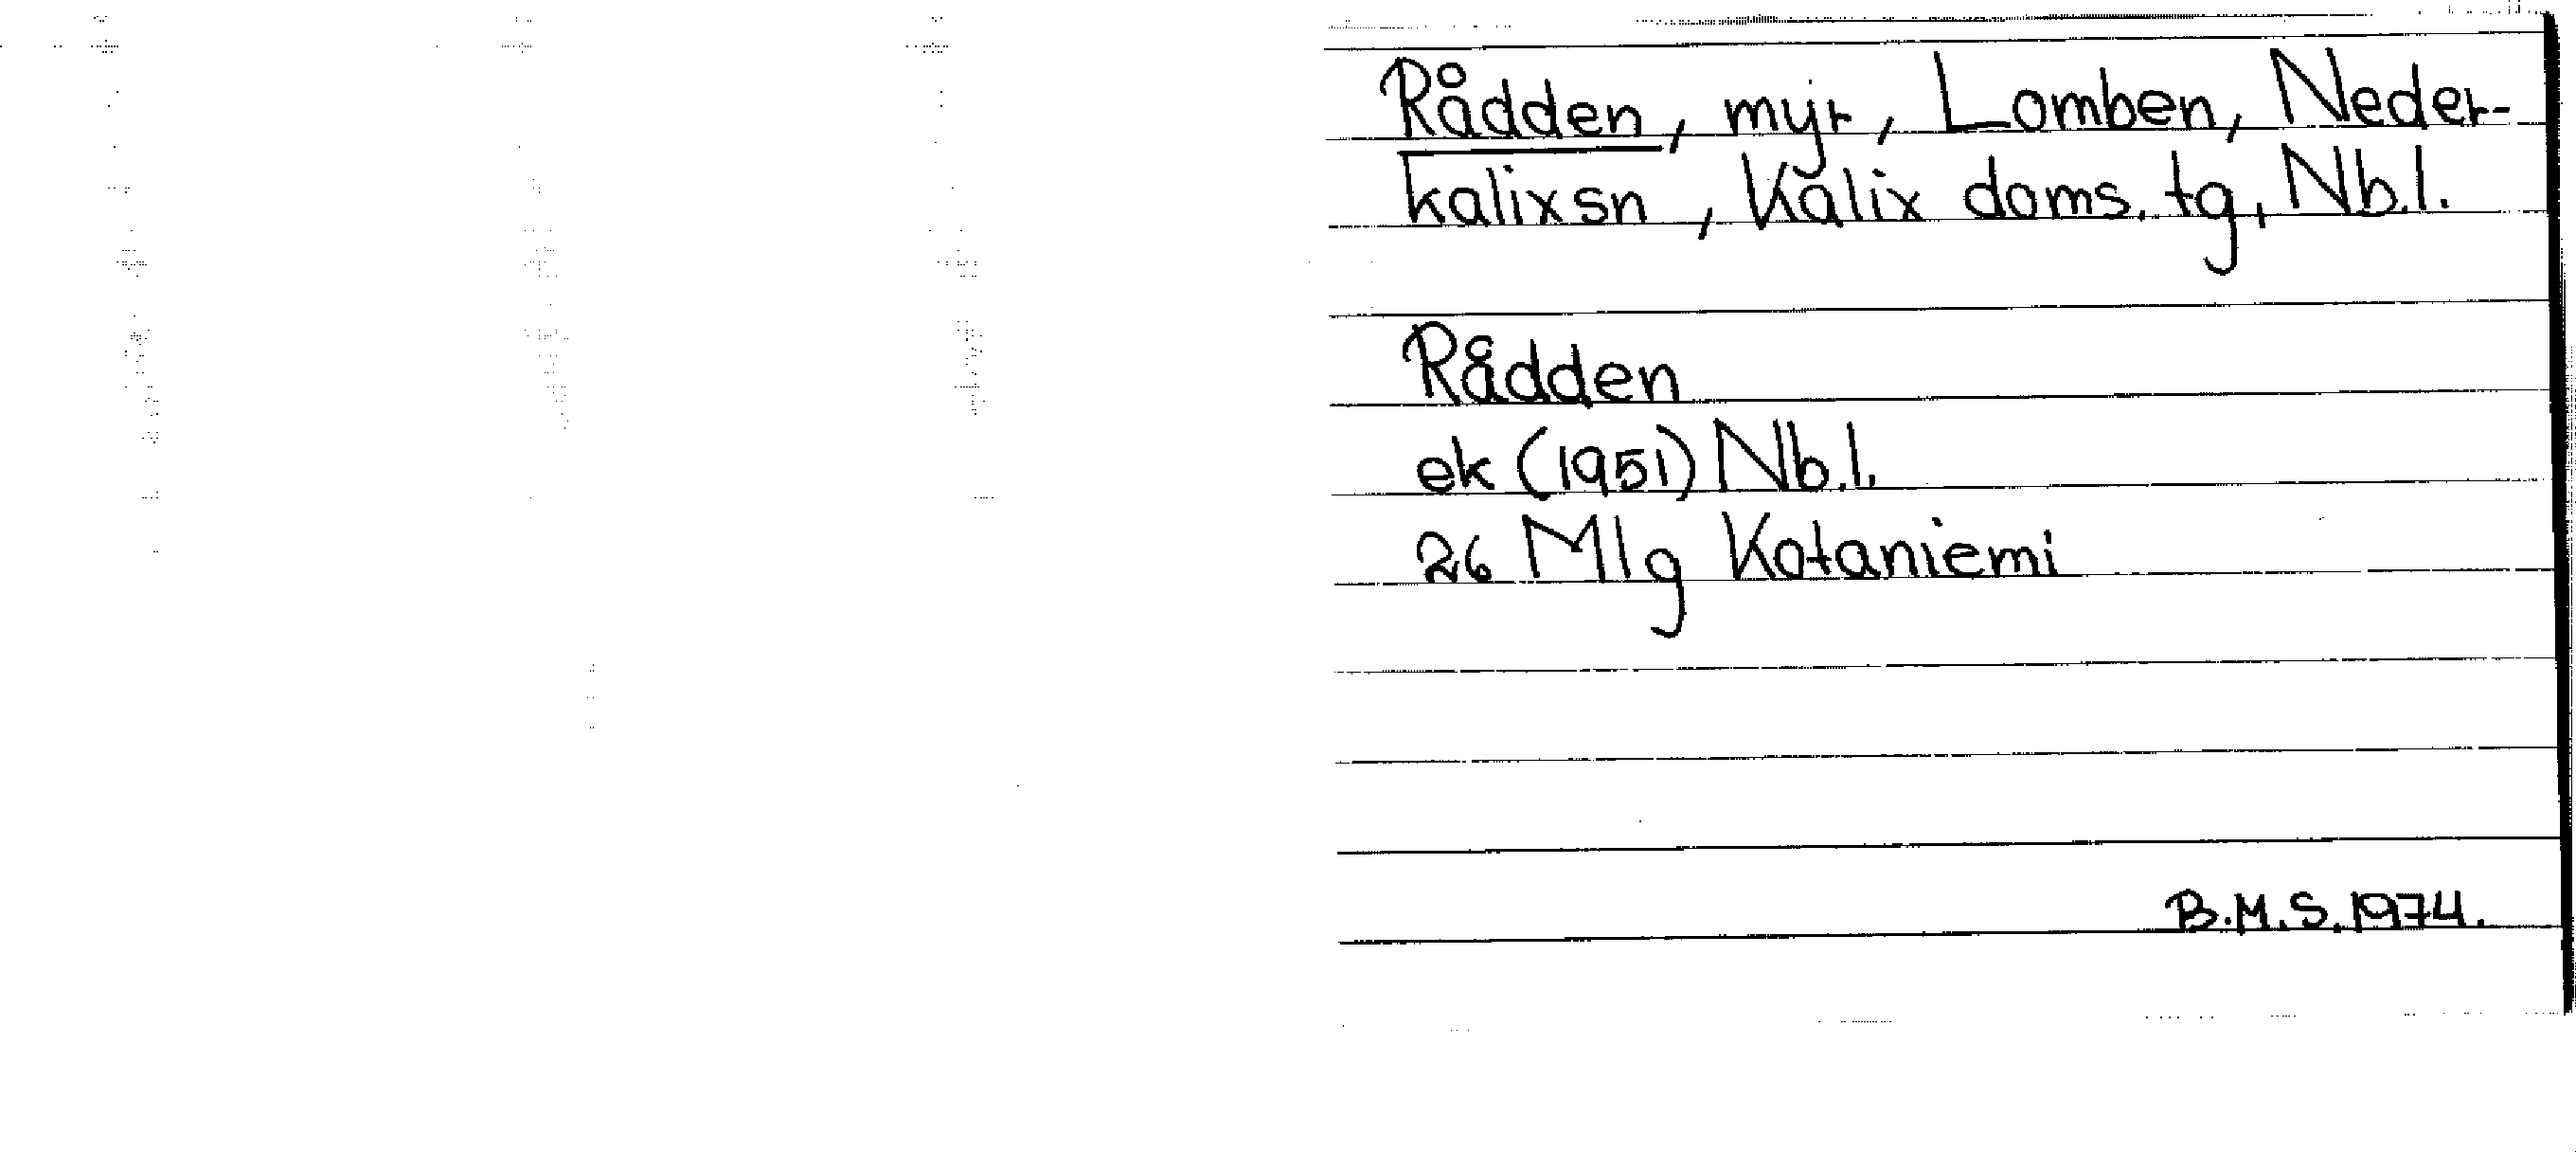 Rådden, myr, Lomben, Neder-
kalixsn, Kalix doms. tg, Nb.l.
Rådden
ek (1951) Nb.l.
26 Mlg Kotaniemi
B.M.S. 1974.